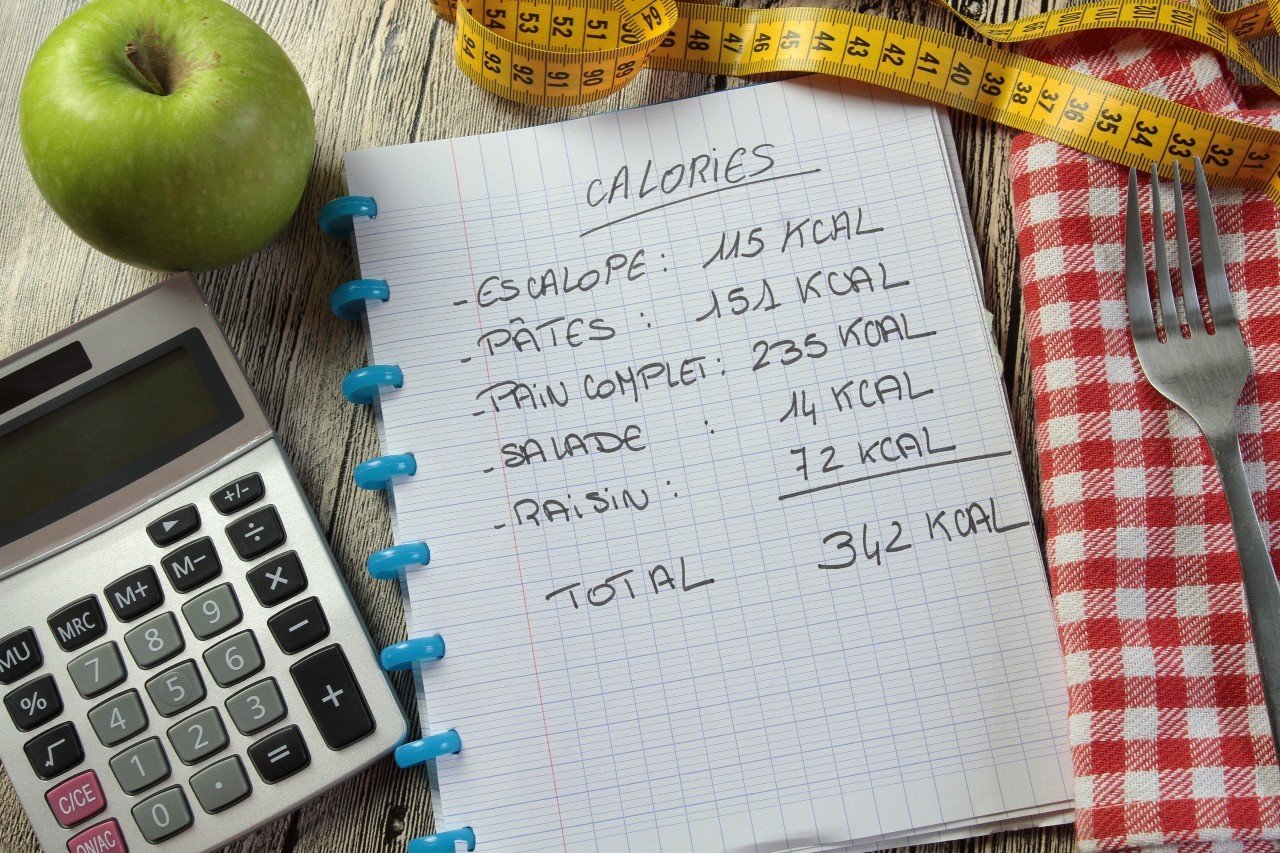 CALORIES
- ESCALOPE : 115 KCAL
- PÂTES : 151 KCAL
- PAIN COMPLET : 235 KCAL
- SALADE : 14 KCAL
- RAISIN : 72 KCAL
TOTAL 342 KCAL
54 53 52 51 64
94 93 92 91 90 89
48 47 46 45 44 43 42 41 40 39 38 37 36 35 34 33 32 31
+/-
▶ ÷
MU MRC M+ M− ×
% 7 8 9 −
√ 4 5 6 +
C/CE 1 2 3
ON/AC 0 · =